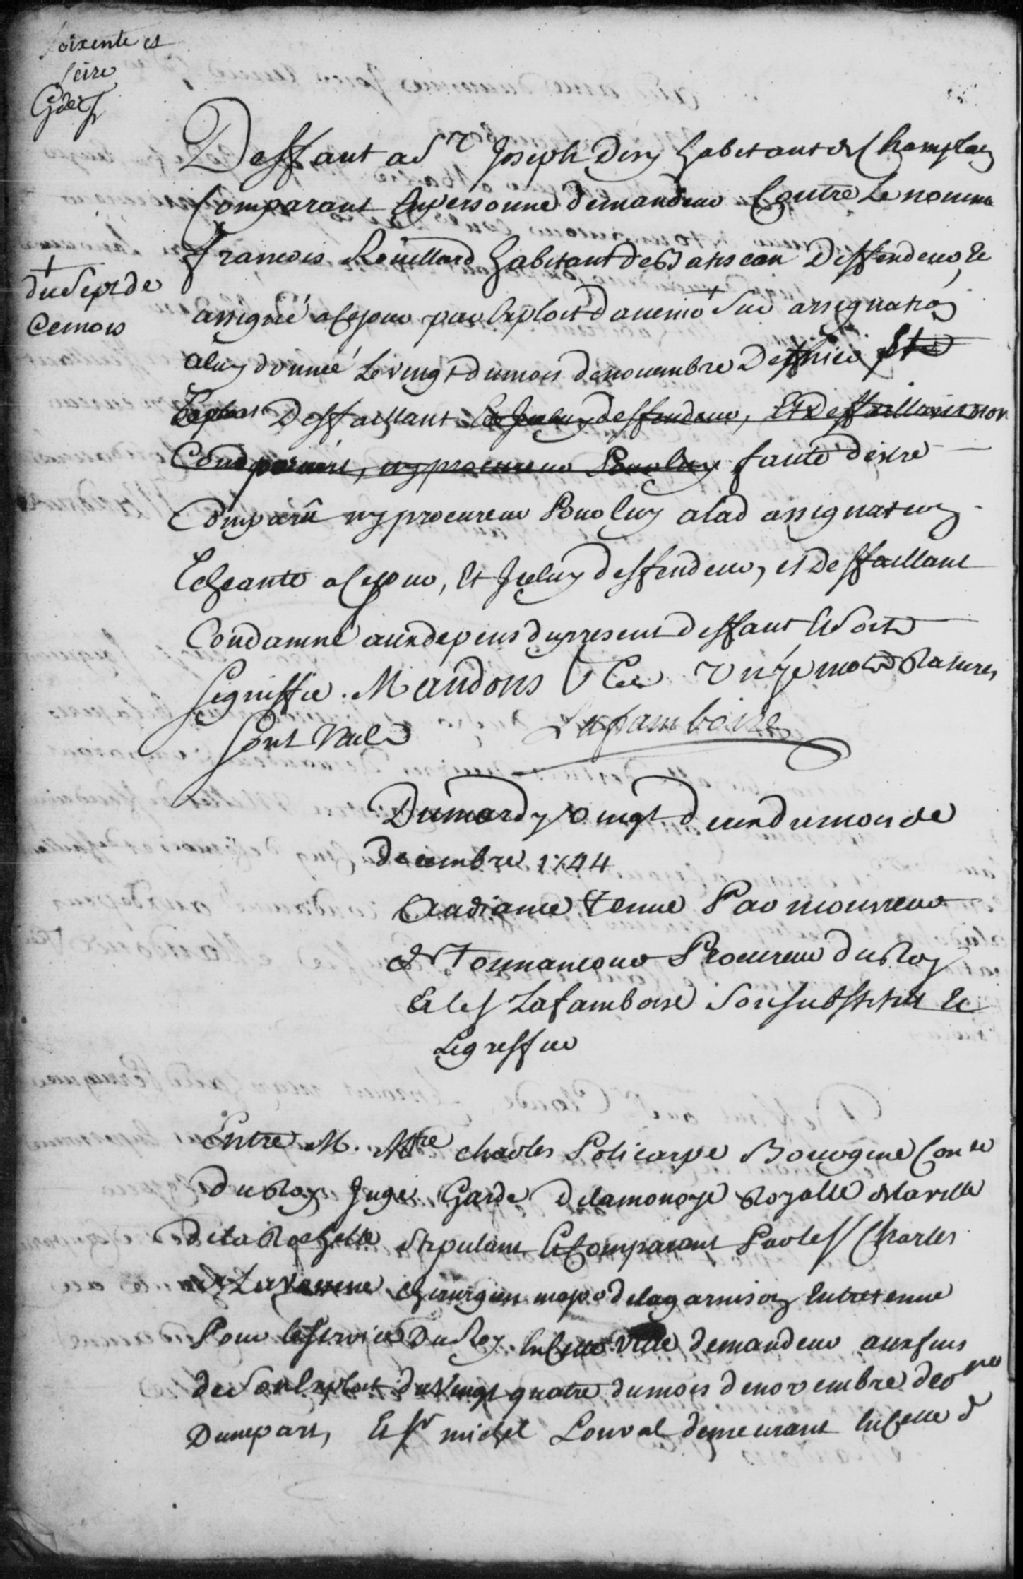 Soixente et
Seire
Deffaut a Sr Joseph Dery habitant de Champlain
Comparant En personne demandeur Contre Le nommé
francois Rouillard habitant de Batiscan Deffendeur, Et
+ du Sept de
Ce mois
assigné a Ce jour par Exploit d'avenir + Sur assignation
a luy donnée Le vingt du mois de novembre Dernier Et
Deffaillant Et Iceluy deffendeur, Et Deffaillant non
Comparant, ny procureur Pour luy faute d'estre
Comparû ny procureur Pour luy a lad assignation
Echeante a Ce jour, Et Iceluy deffendeur, et Deffaillant
Condamné aux depens du present deffaut Et Soit
Signiffié. Mandons &Ce mots Ratures
Sont Nuls Laframboise
Du mardy vingt deux du mois de
decembre 1744
Audiance Tenue Par monsieur
de Tonnancour Procureur du Roy
Et le Sr Lafamboise Son substitut Et
Le greffier
Entre M. Mtre charles Policarpe Bourgine Coner
du Roy Juge Garde De la monoye Royalle de la ville
de la Rochelle Stipulant Et Comparant Par le Sr Charles
Chirurgien major de la garnison Entretenue
Pour le Service Du Roy En Cette Ville demandeur aux fins
de Son Exploit du Vingt quatre du mois de novembre der
D'une part, Et Sr michel Louval demeurant En Cette d